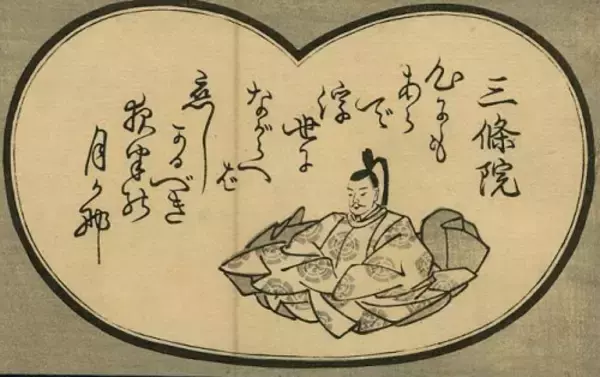 三條院
心にも
あら
で
浮
世に
ながらへ
ば
恋し
かるべき
夜半の
月かな